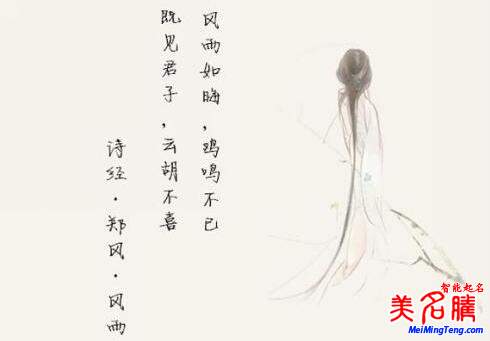 风雨如晦，鸡鸣不已
既见君子，云胡不喜
诗经·郑风·风雨
智能起名
美名腾
MeiMingTeng.com